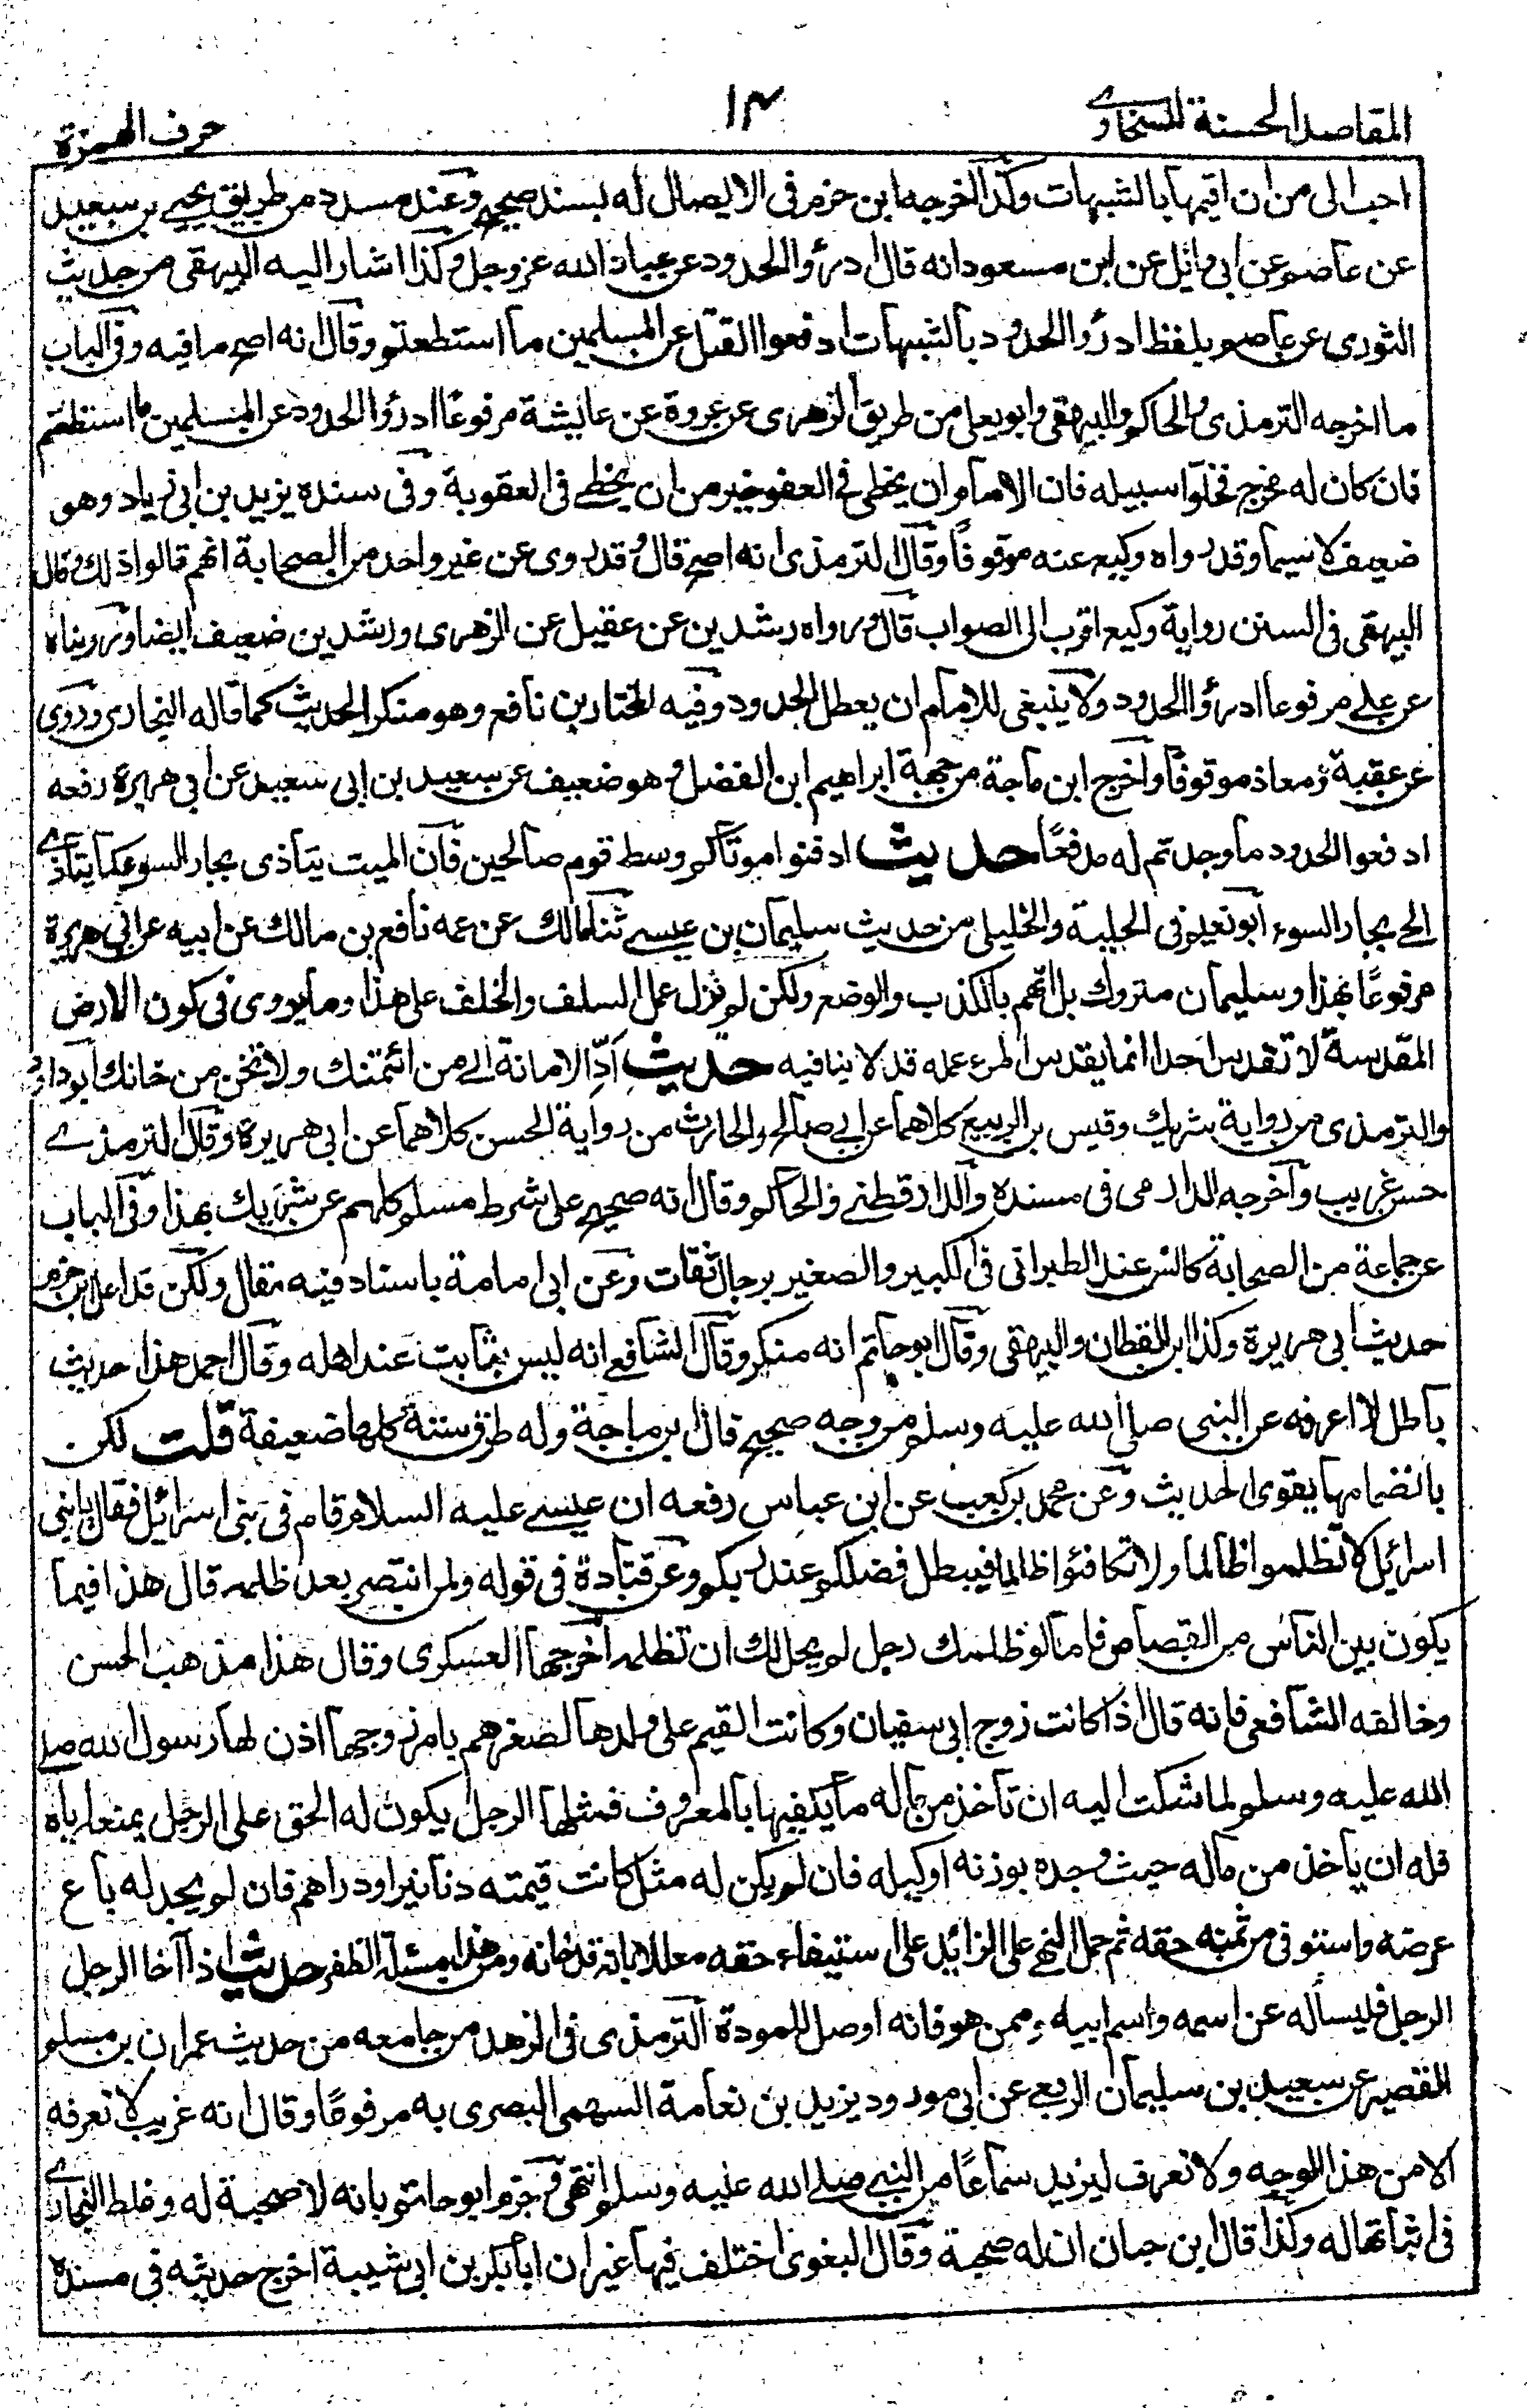 المقاصد الحسنة للسخاوي
١٣
حرف الهمزة
احب الى من ان اقيمها بالشبهات وكذا اخرجه ابن حزم فى الايصال له بسند صحيح وعند مسدد من طريق يحيى بن سعيد
عن عاصم عن ابى وائل عن ابن مسعود انه قال ادرؤا الحدود عن عباد الله عز وجل وكذا اشار اليه البيهقى من حديث
الثورى عن عاصم بلفظ ادرؤا الحدود بالشبهات ادفعوا القتل عن المسلمين ما استطعتم وقال انه اصح ما فيه وفى الباب
ما اخرجه الترمذى والحاكم والبيهقى وابو يعلى من طريق الزهرى عن عروة عن عائشة مرفوعًا ادرؤا الحدود عن المسلمين ما استطعتم
فان كان له مخرج فخلوا سبيله فان الامام ان يخطى فى العفو خير من ان يخطے فى العقوبة وفى سنده يزيد بن ابى زياد وهو
ضعيف لا سيما وقد رواه وكيع عنه موقوفًا وقال الترمذى انه اصح قال وقد روى عن غير واحد من الصحابة انهم قالوا ذلك وقال
البيهقى فى السنن رواية وكيع اقرب الى الصواب قال ورواه رشدين عن عقيل عن الزهرى ورشدين ضعيف ايضا ورويناه
عن على مرفوعا ادرؤا الحدود ولا ينبغى للامام ان يعطل الحدود وفيه المختار بن نافع وهو منكر الحديث كما قاله البخارى وروى
عن عقبة ومعاذ موقوفًا واخرج ابن ماجة من جهة ابراهيم ابن الفضل وهو ضعيف عن سعيد بن ابى سعيد عن ابى هريرة رفعه
ادفعوا الحدود ما وجدتم له مدفعًا حديث ادفنوا موتاكم وسط قوم صالحين فان الميت يتاذى بجار السوء كما يتاذى
الحى بجار السوء ابو نعيم فى الحلية والخليلى من حديث سليمان بن عيسے ثنا مالك عن عمه نافع بن مالك عن ابيه عن ابى هريرة
مرفوعًا بهذا وسليمان متروك بل اتهم بالكذب والوضع ولكن لم نزل عمل السلف والخلف على هذا وما يروى فى كون الارض
المقدسة لا تقدس احدا انما يقدس المرء عمله قد لا ينافيه حديث اَدِّ الامانة الے من ائتمنك ولا تخن من خانك ابو داود
والترمذى من رواية شريك وقيس بن الربيع كلاهما عن ابى صالح والحارث من رواية الحسن كلاهما عن ابى هريرة وقال الترمذے
حسن غريب واخرجه الدارمى فى مسنده والدارقطنے والحاكم وقال انه صحيح على شرط مسلم كلهم عن شريك بهذا وفى الباب
عن جماعة من الصحابة كانس عند الطبرانى فى الكبير والصغير برجال ثقات وعن ابى امامة باسناد فيه مقال ولكن قد اعل ابن حزم
حديث ابى هريرة وكذا ابن القطان والبيهقى وقال ابو حاتم انه منكر وقال الشافعے انه ليس بثابت عند اهله وقال احمد هذا حديث
باطل لا اعرفه عن النبى صلى الله عليه وسلم من وجه صحيح قال ابن ماجة وله طرق ستة كلها ضعيفة قلت لكن
بانضمامها يقوى الحديث وعن محمد بن كعب عن ابن عباس رفعه ان عيسے عليه السلام قام فى بنى اسرائيل فقال يا بنى
اسرائيل لا تظلموا ظالما ولا تكافئوا ظالما فيبطل فضلكم عند ربكم وعن قتادة فى قوله ولمن انتصر بعد ظلمه قال هذا فيما
يكون بين الناس من القصاص فاما لو ظلمك رجل لم يحل لك ان تظلمه اخرجها العسكرى وقال هذا مذهب الحسن
وخالفه الشافعى فانه قال اذا كانت زوج ابى سفيان وكانت القيم على ولدها لصغرهم بامر زوجها اذن لها رسول الله صلے
الله عليه وسلم لما شكت اليه ان تاخذ من ماله ما يكفيها بالمعروف فمثلها الرجل يكون له الحق على الرجل يمنعه اياه
فله ان ياخذ من ماله حيث وجده بوزنه او كيله فان لم يكن له مثل كانت قيمته دنانير او دراهم فان لم يجد له باع
عرضه واستوفى من ثمنه حقه ثم حمل النهى على الزائد على استيفاء حقه معللا بانه قد خانه ومن هذا مسئلة الظفر حديث اذا آخا الرجل
الرجل فليسأله عن اسمه واسم ابيه وممن هو فانه اوصل للمودة الترمذى فى الزهد من جامعه من حديث عمران بن مسلم
القصير عن سعيد بن سليمان الربعے عن ابى مودود يزيد بن نعامة السهمى البصرى به مرفوعًا وقال انه غريب لا نعرفه
الا من هذا الوجه ولا نعرف ليزيد سماعًا من النبے صلے الله عليه وسلم انتهى وجزم ابو حاتم بانه لا صحبة له وغلط البخارے
فى اثباتها له وكذا قال ابن حبان ان له صحبة وقال البغوى اختلف فيها غير ان ابا بكر بن ابى شيبة اخرج حديثه فى مسنده